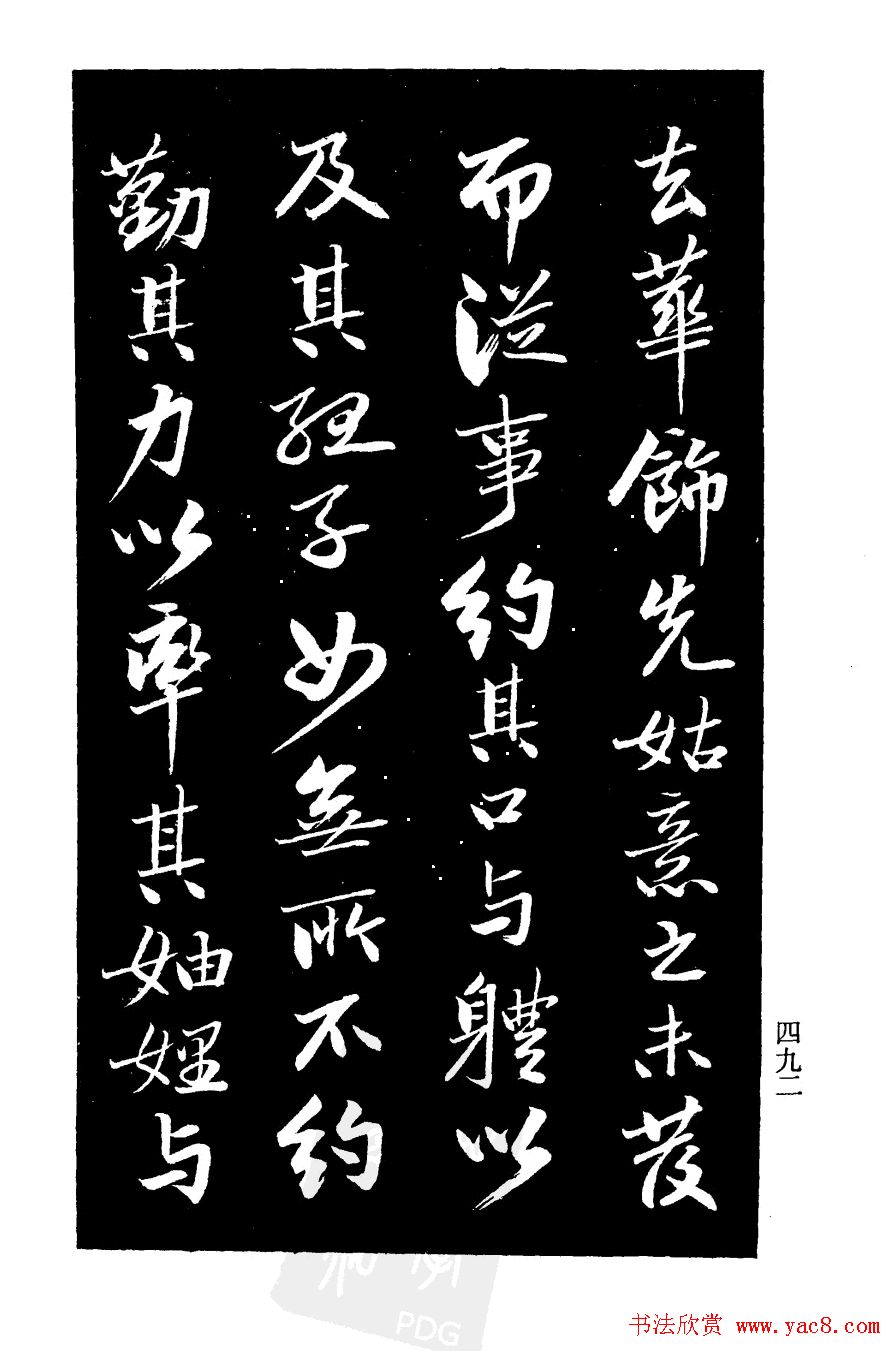 去華飾先姑意之未發
而從事約其口与軆以
及其姪子女無所不約
勤其力以率其妯娌与
四九二
PDG
书法欣赏 www.yac8.com